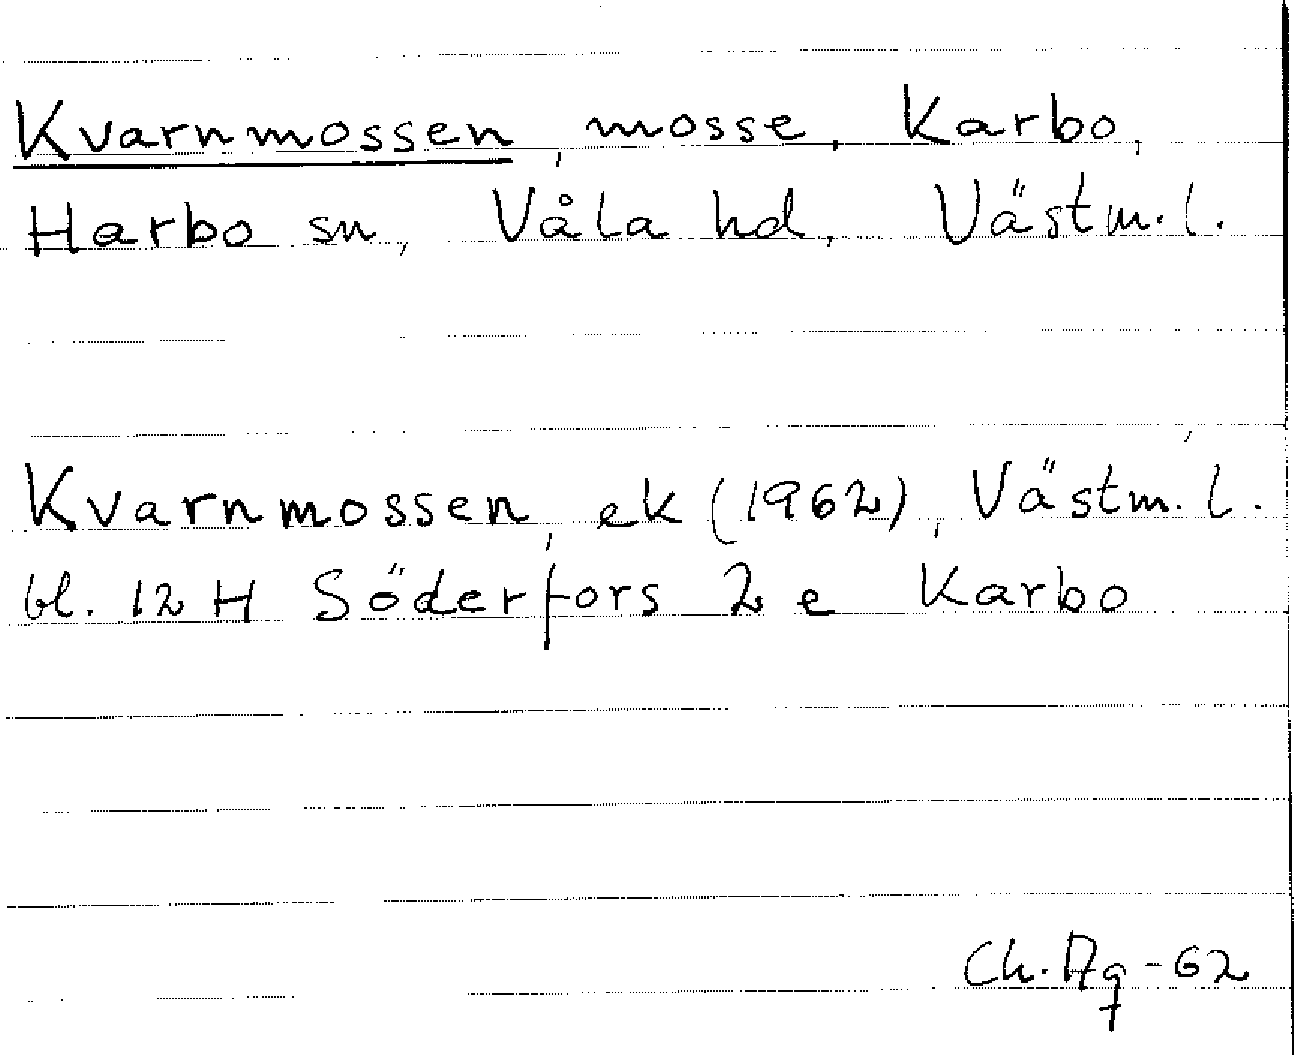 Kvarnmossen, mosse, Karbo,
Harbo sn, Våla hd, Västm. l.
Kvarnmossen, ek (1962), Västm. l.
bl. 12 H Söderfors 2 e Karbo
Ch. Aq -62